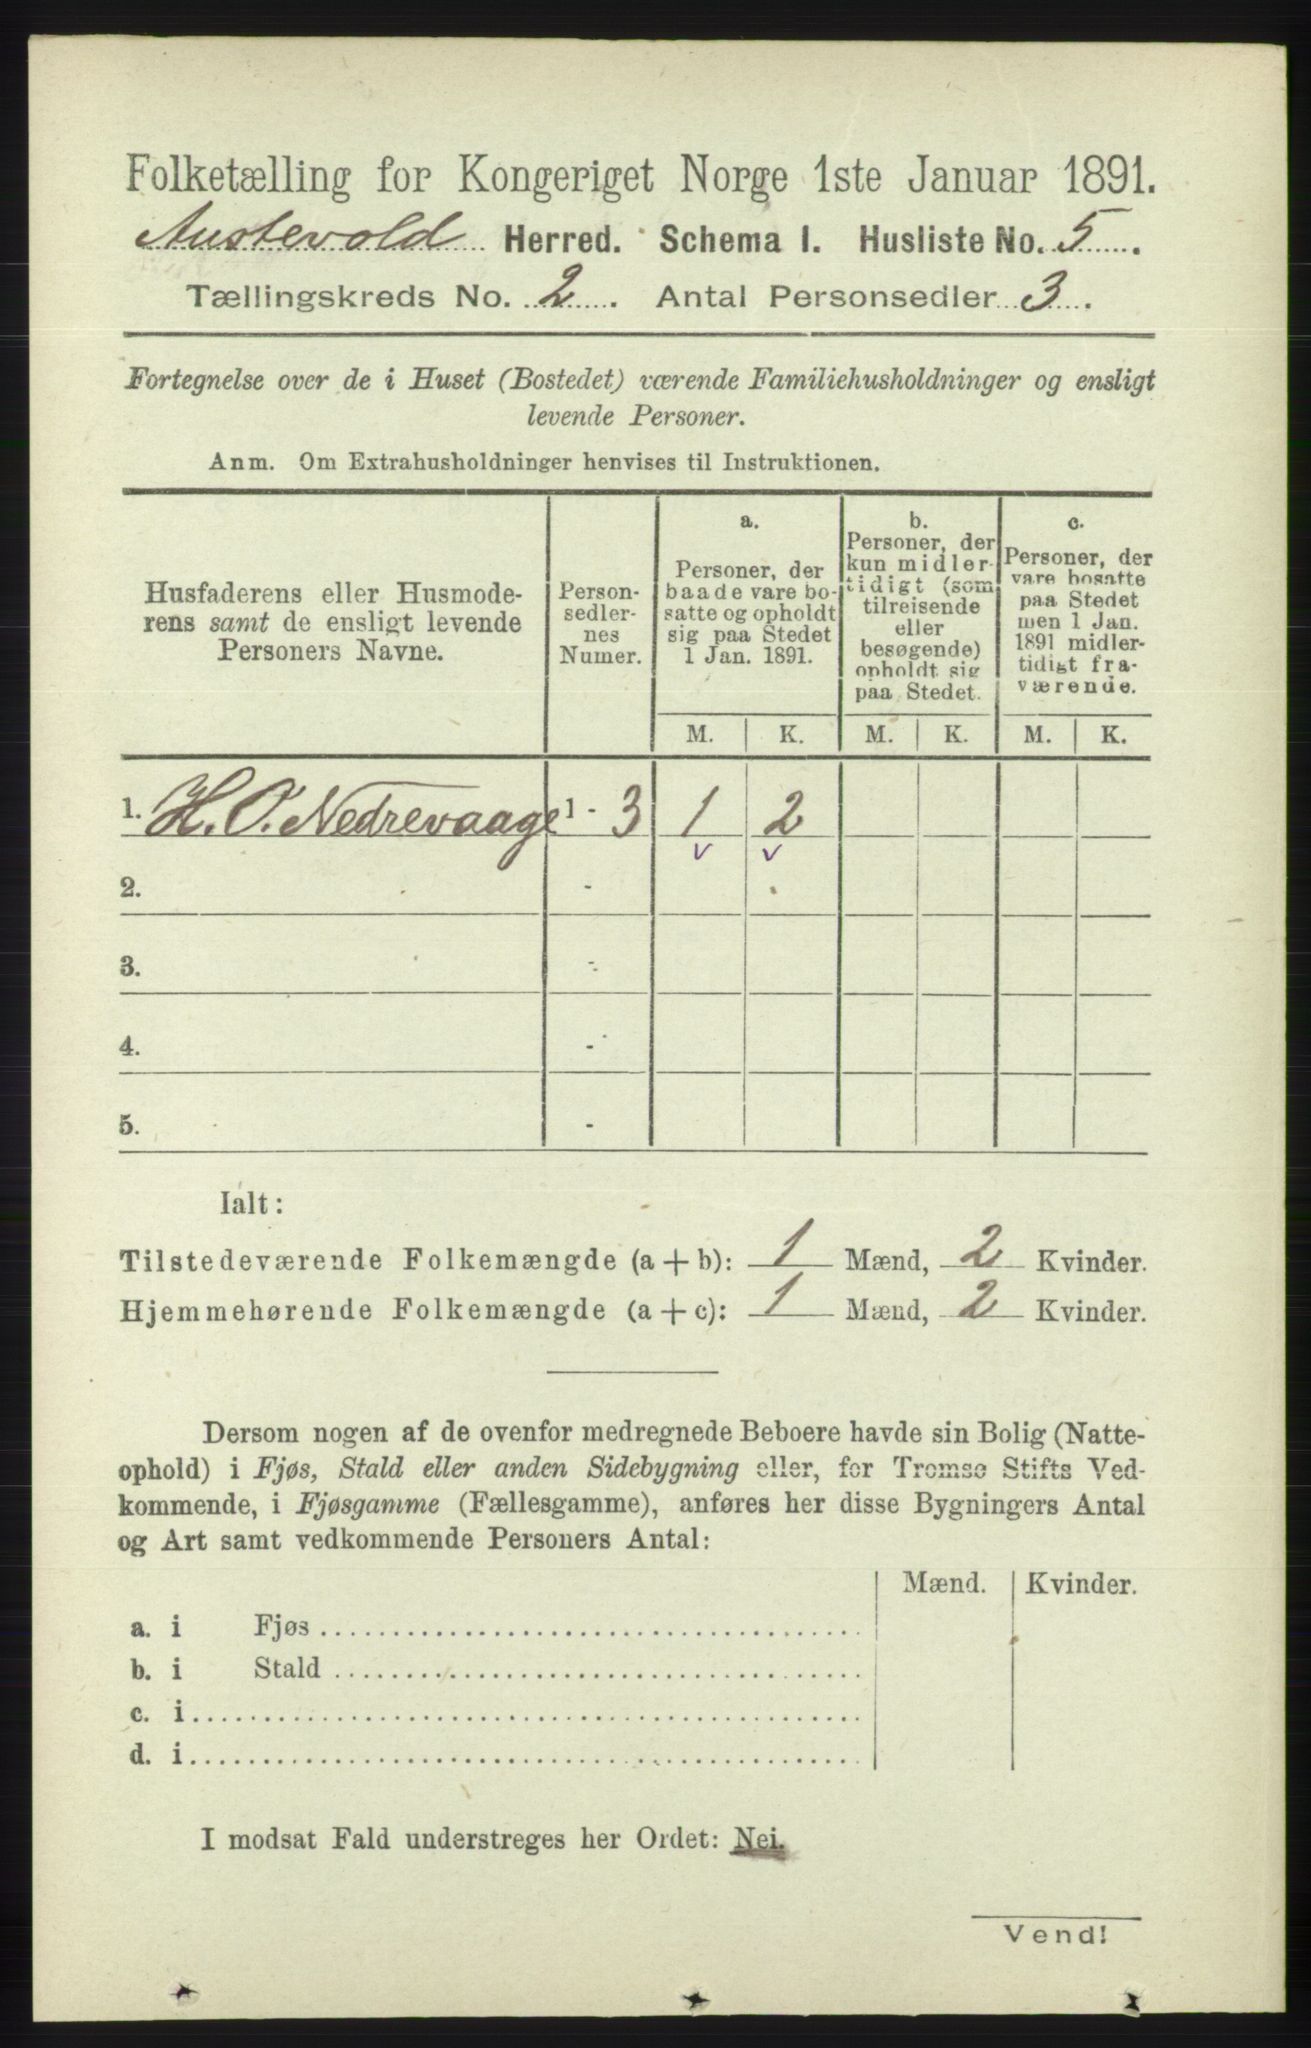 Folketælling for Kongeriget Norge 1ste Januar 1891.
Austevold Herred. Schema I. Husliste No. 5.
Tællingskreds No. 2. Antal Personsedler 3.
Fortegnelse over de i Huset (Bostedet) værende Familiehusholdninger og ensligt
levende Personer.
Anm. Om Extrahusholdninger henvises til Instruktionen.
Husfaderens eller Husmode-
rens samt de ensligt levende
Personers Navne.
Person-
sedler-
nes
Numer.
a.
Personer, der
baade vare bo-
satte og opholdt
sig paa Stedet
1 Jan. 1891.
b.
Personer, der
kun midler-
tidigt (som
tilreisende
eller
besøgende)
opholdt sig
paa Stedet.
c.
Personer, der
vare bosatte
paa Stedet
men 1 Jan.
1891 midler-
tidigt fra-
værende.
M. K. M. K. M. K.
1. H. O. Nedrevaage 1 - 3 1 2
2. -
3. -
4. -
5. -
Ialt:
Tilstedeværende Folkemængde (a + b): 1 Mænd, 2 Kvinder.
Hjemmehørende Folkemængde (a + c): 1 Mænd, 2 Kvinder.
Dersom nogen af de ovenfor medregnede Beboere havde sin Bolig (Natte-
ophold) i Fjøs, Stald eller anden Sidebygning eller, for Tromsø Stifts Ved-
kommende, i Fjøsgamme (Fællesgamme), anføres her disse Bygningers Antal
og Art samt vedkommende Personers Antal:
Mænd. Kvinder.
a. i Fjøs
b. i Stald
c. i
d. i
I modsat Fald understreges her Ordet: Nei.
Vend!